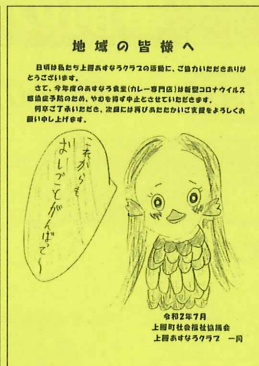 地域の皆様へ
日頃は私たち上郡あすなろクラブの活動に、ご協力いただきありが
とうございます。
さて、今年度のあすなろ食堂(カレー専門店)は新型コロナウイルス
感染症予防のため、やむを得ず中止とさせていただきます。
何卒ご了承いただき、次回には再びあたたかいご支援をよろしくお
願い申し上げます。
これからも
おしごとがんばって〜
令和2年7月
上郡町社会福祉協議会
上郡あすなろクラブ 一同